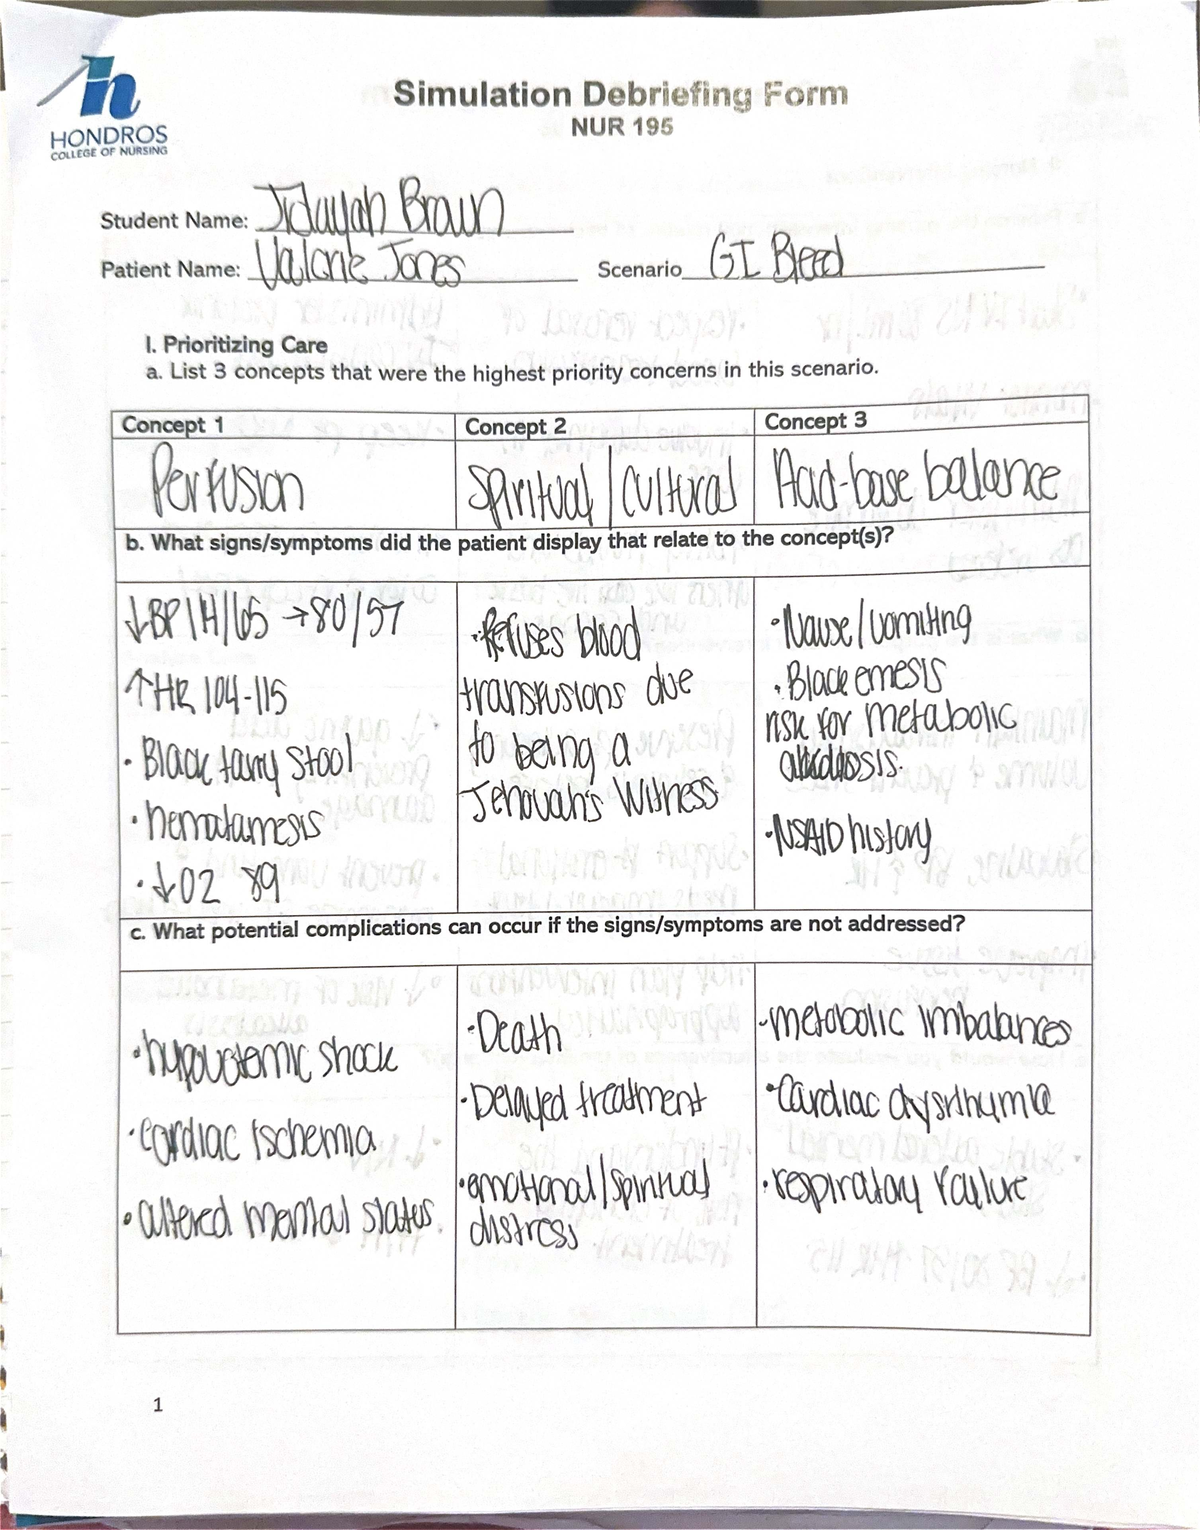 HONDROS
COLLEGE OF NURSING
Simulation Debriefing Form
NUR 195
Student Name: Jidayah Brown
Patient Name: Valarie Jones Scenario GI Bleed
I. Prioritizing Care
a. List 3 concepts that were the highest priority concerns in this scenario.
Concept 1 Concept 2 Concept 3
Perfusion Spiritual/Cultural Acid-base balance
b. What signs/symptoms did the patient display that relate to the concept(s)?
↓BP 114/65 → 80/57
↑HR 104-115
• Black tarry stool
• hematamesis
• ↓O2 89
• Refuses blood
transfusions due
to being a
Jehovah's Witness
• Nause/vomiting
• Black emesis
risk for metabolic
alkalosis.
• NSAID history
c. What potential complications can occur if the signs/symptoms are not addressed?
• hypovolemic shock
• cardiac ischemia
• altered mental status.
• Death
• Delayed treatment
• emotional/spiritual
distress
- metabolic imbalances
• Cardiac dysrthymia
• respiratory failure
1